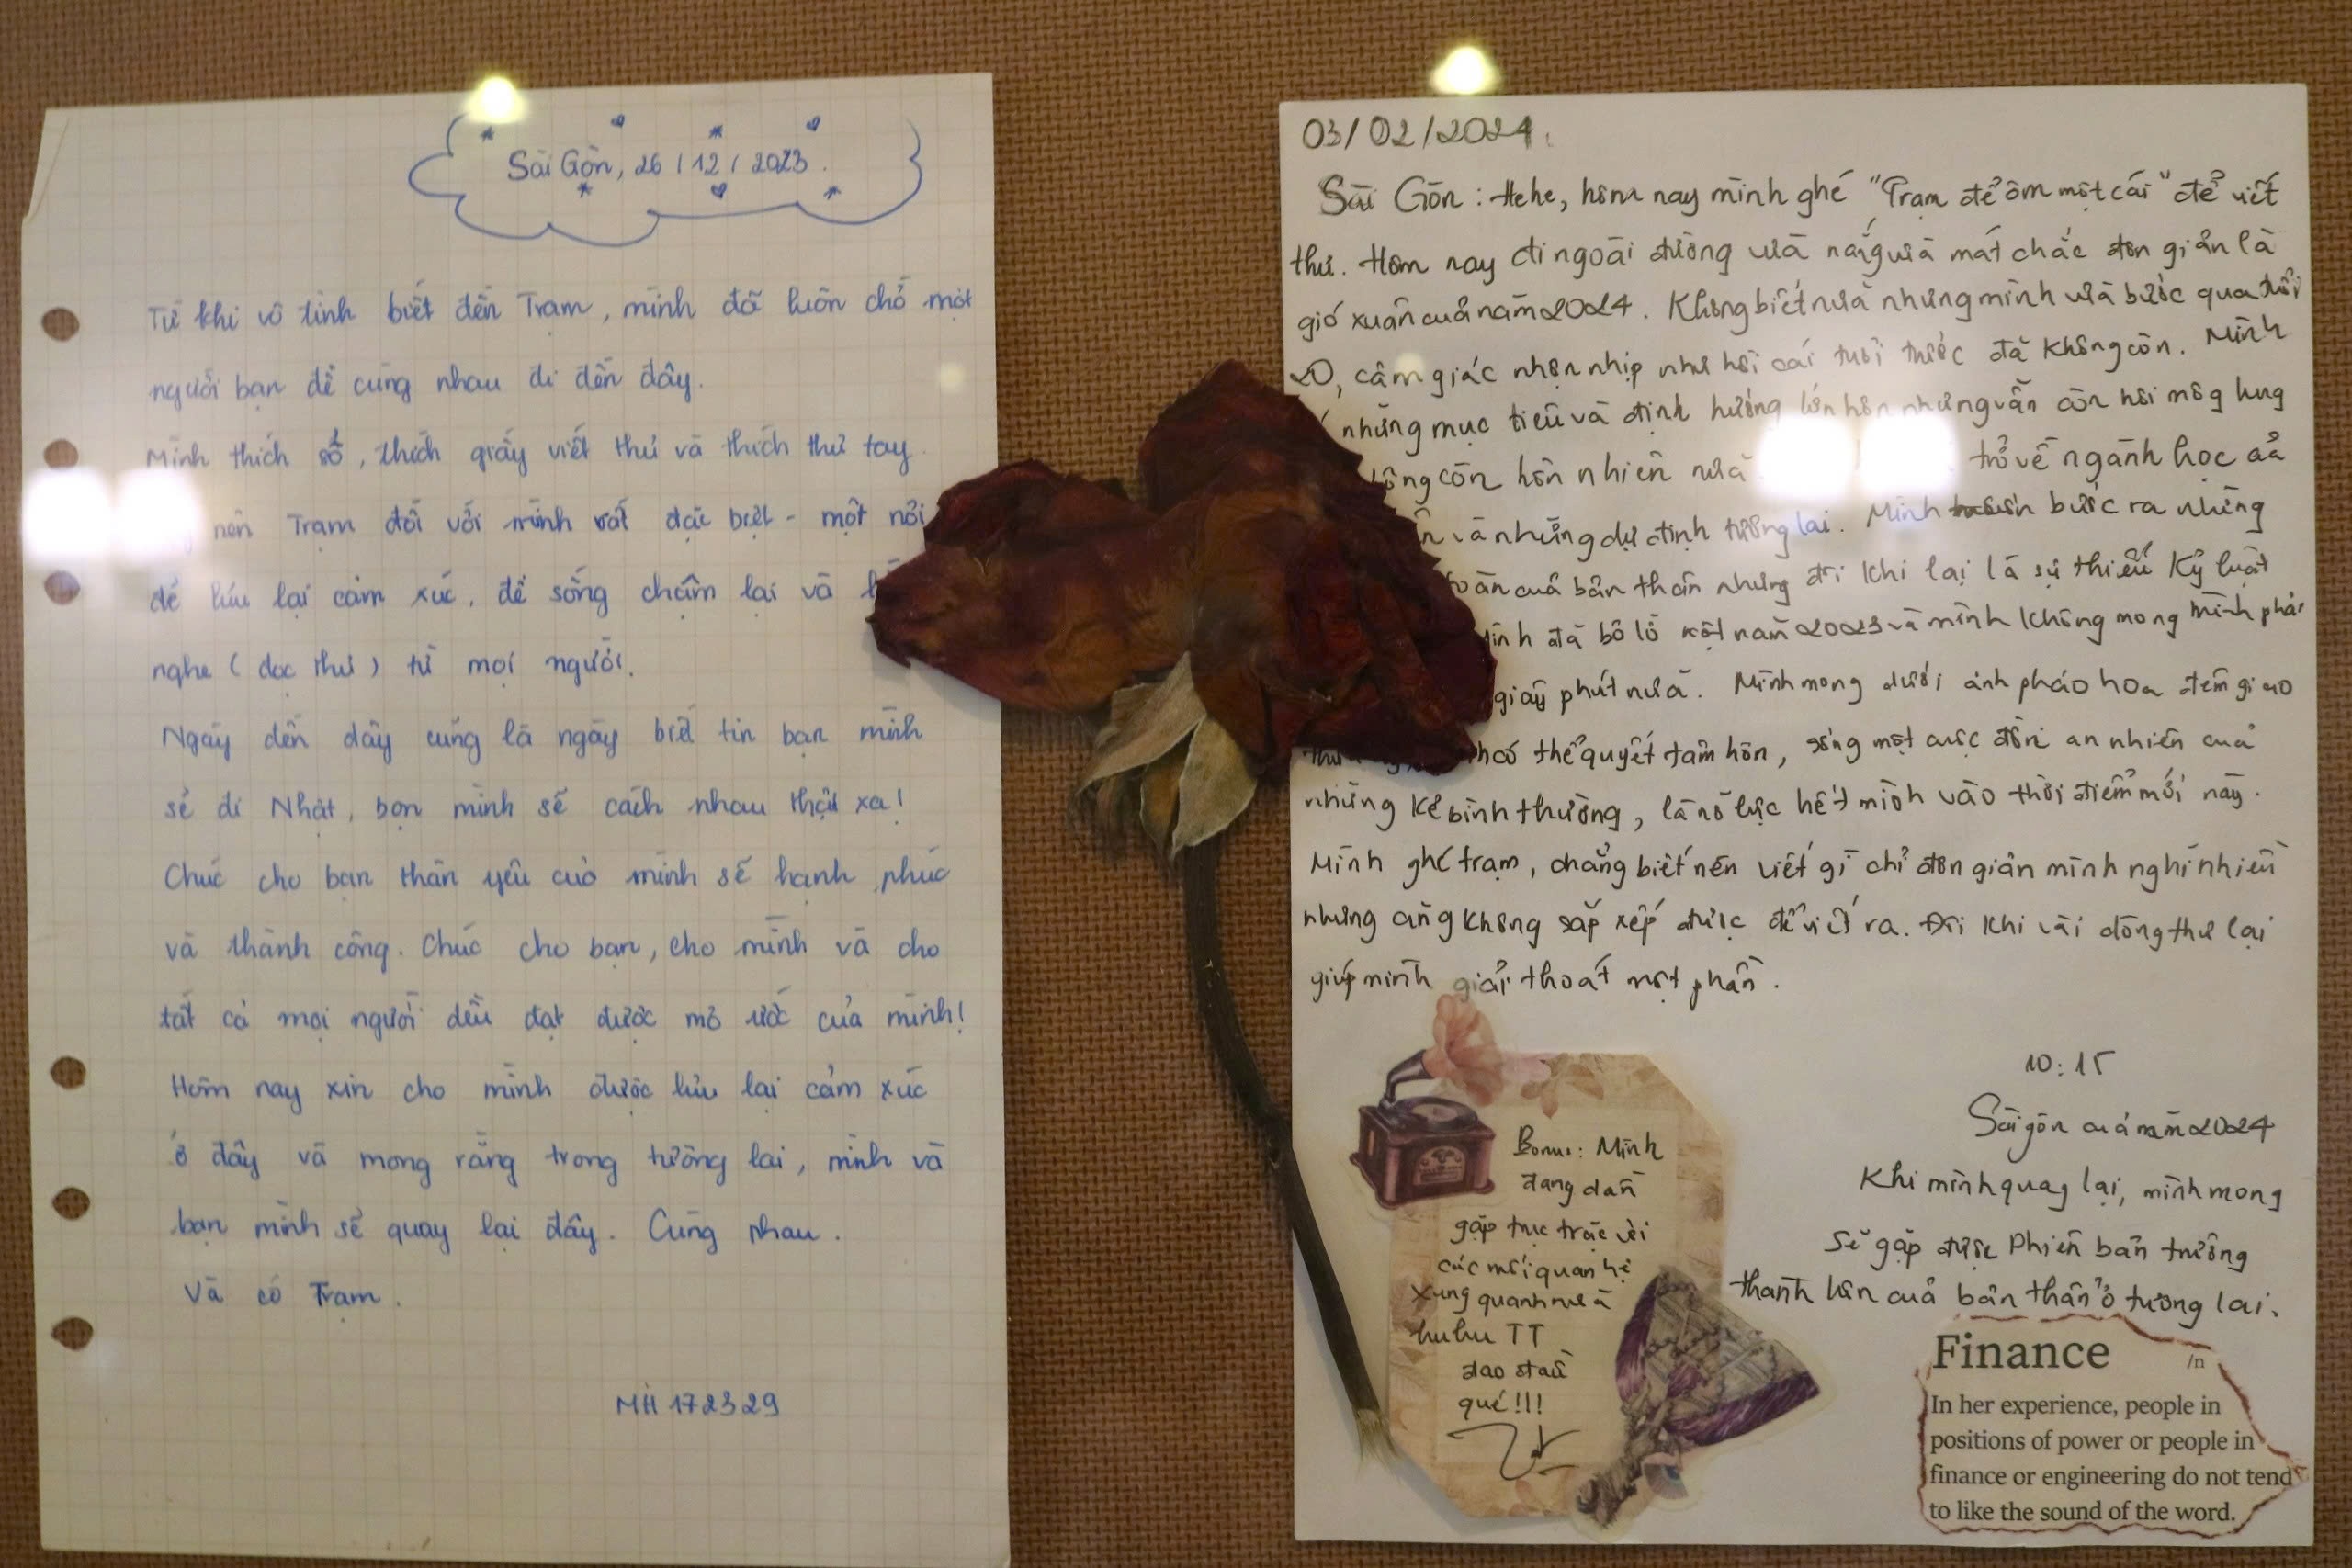 Sài Gòn, 26/12/2023.
Từ khi vô tình biết đến Trạm, mình đã luôn chờ một
người bạn để cùng nhau đi đến đây.
Mình thích sổ, thích giấy viết thư và thích thư tay.
nên Trạm đối với mình rất đặc biệt - một nơi
để lưu lại cảm xúc, để sống chậm lại và
nghe (đọc thư) từ mọi người.
Ngày đến đây cũng là ngày biết tin bạn mình
sẽ đi Nhật, bọn mình sẽ cách nhau thật xa!
Chúc cho bạn thân yêu của mình sẽ hạnh phúc
và thành công. Chúc cho bạn, cho mình và cho
tất cả mọi người đều đạt được mơ ước của mình!
Hôm nay xin cho mình được lưu lại cảm xúc
ở đây và mong rằng trong tương lai, mình và
bạn mình sẽ quay lại đây. Cùng nhau.
Và có Trạm.
MH 172329
03/02/2024.
Sài Gòn: Hehe, hôm nay mình ghé "Trạm để ôm một cái" để viết
thư. Hôm nay đi ngoài đường vừa nắng vừa mát chắc đơn giản là
gió xuân của năm 2024. Không biết nữa nhưng mình vừa bước qua tuổi
20, cảm giác nhộn nhịp như hồi cái tuổi trước đã không còn. Mình
những mục tiêu và định hướng lớn hơn nhưng vẫn còn hơi mông lung
còn hồn nhiên nữa trở về ngành học cả
và những dự định tương lai. Mình bước ra những
toàn của bản thân nhưng đôi khi lại là sự thiếu kỷ luật
mình đã bỏ lỡ một năm 2023 và mình không mong mình phải
giây phút nữa. Mình mong dưới ánh pháo hoa đêm giao
có thể quyết tâm hơn, sống một cuộc đời an nhiên của
những kẻ bình thường, là nỗ lực hết mình vào thời điểm mới này.
Mình ghé trạm, chẳng biết nên viết gì chỉ đơn giản mình nghĩ nhiều
nhưng cũng không sắp xếp được để viết ra. Đôi khi vài dòng thư lại
giúp mình giải thoát một phần.
10:15
Sài gòn của năm 2024
Khi mình quay lại, mình mong
sẽ gặp được phiên bản trưởng
thành hơn của bản thân ở tương lai.
Bonus: Mình
đang dần
gặp trục trặc với
các mối quan hệ
xung quanh nữa
huhu TT
đao đầu
quá!!!
Finance /n
In her experience, people in
positions of power or people in
finance or engineering do not tend
to like the sound of the word.